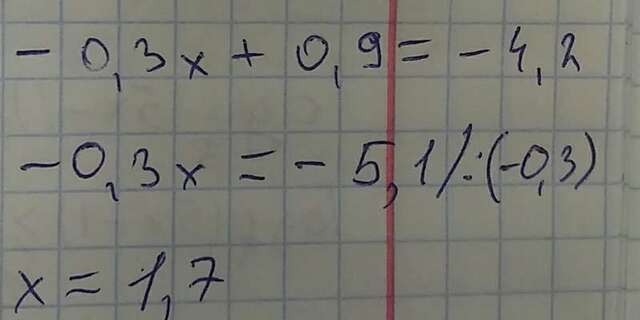 - 0,3x + 0,9 = - 4,2
- 0,3x = - 5,1 /:(-0,3)
x = 1,7